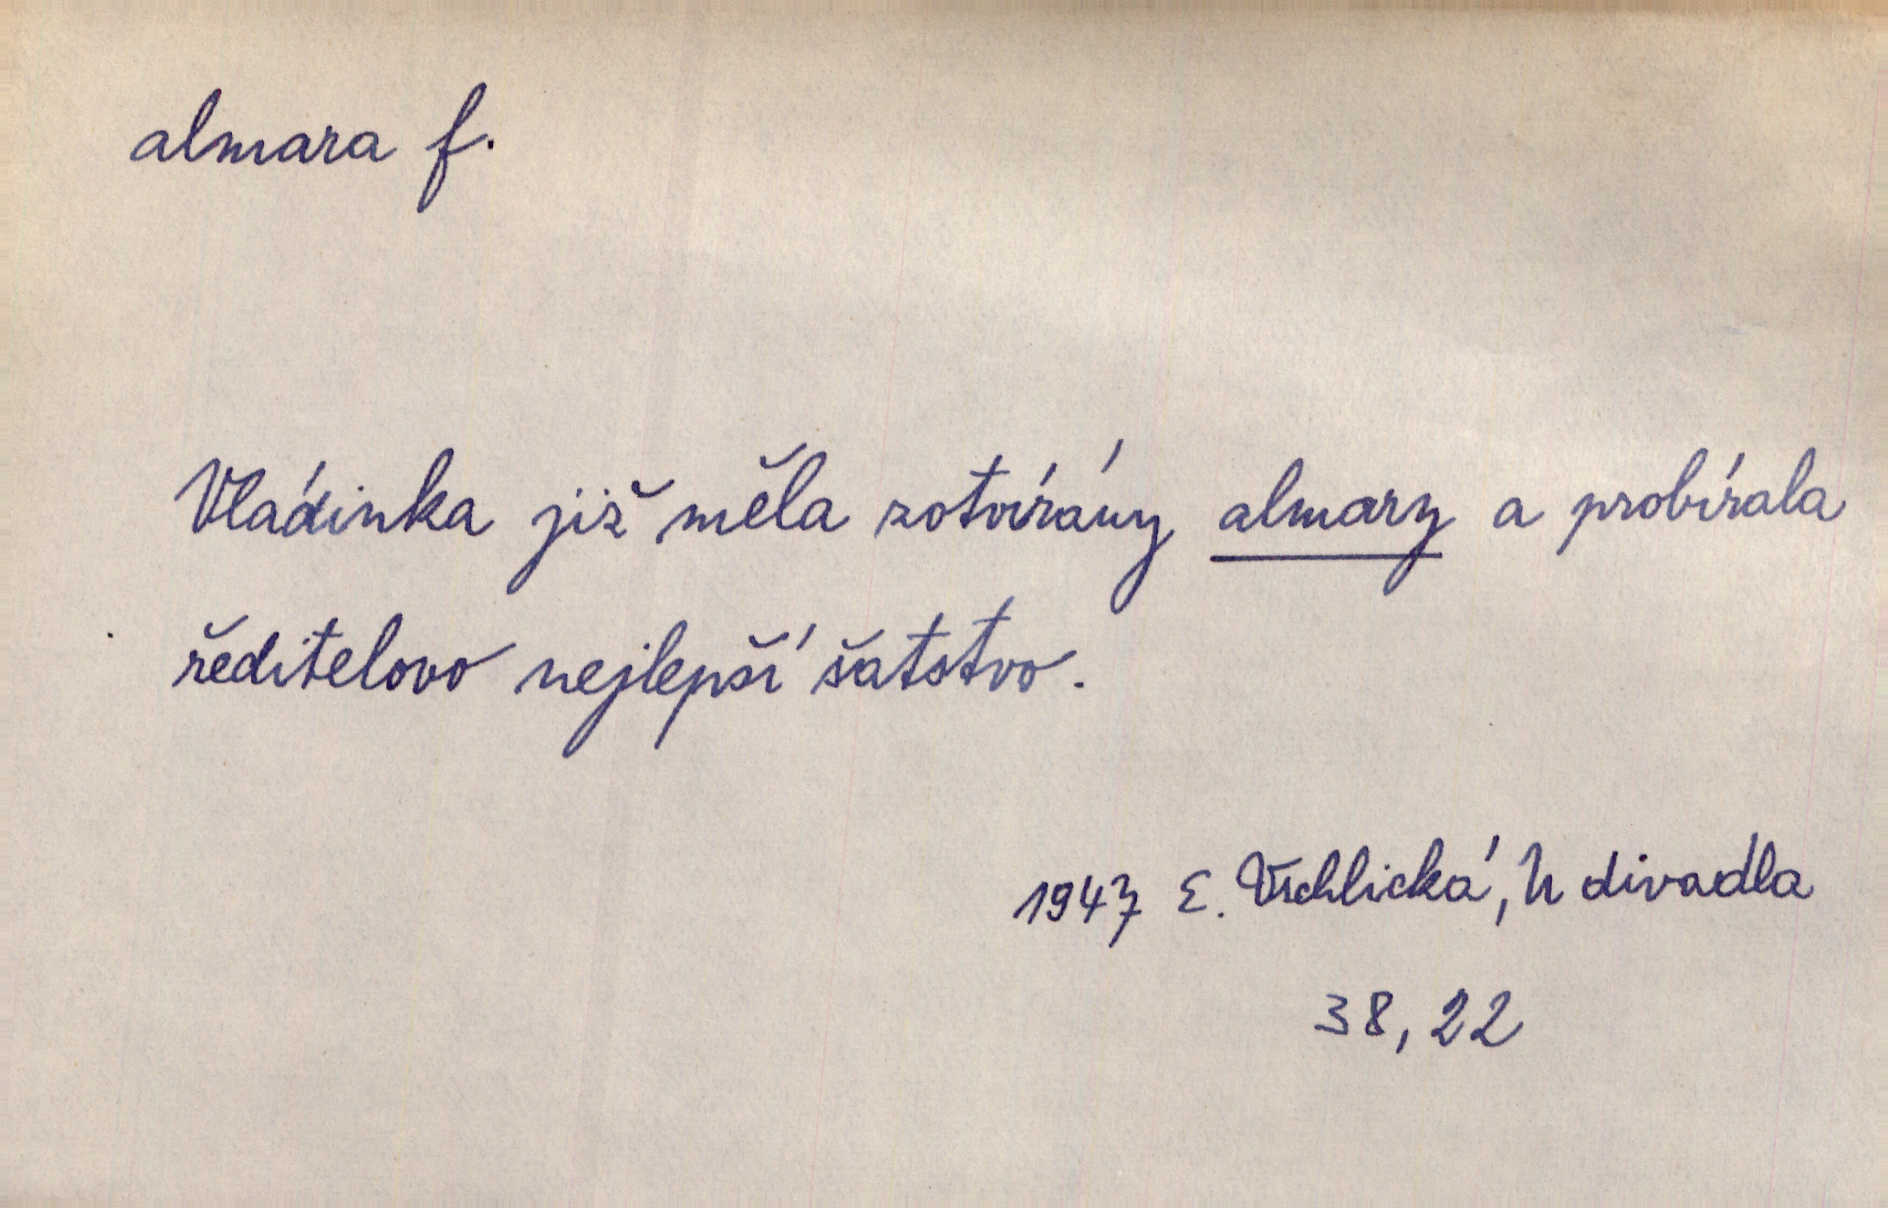 almara f.
Vládinka již měla zotvírány almary a probírala
ředitelovo nejlepší šatstvo.
1947 E. Vrchlická, U divadla
38, 22